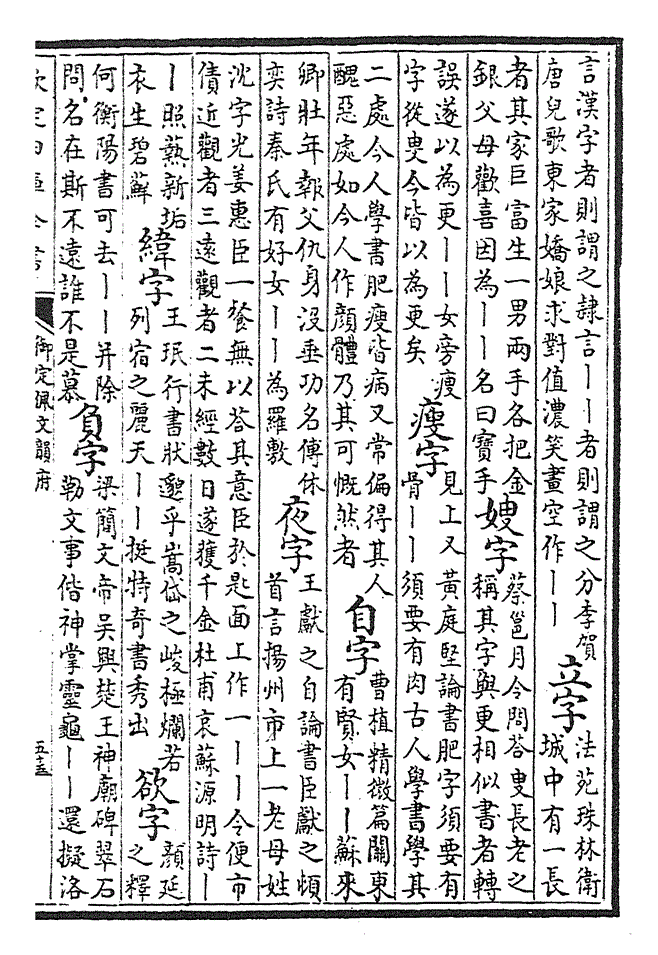 言漢字者則謂之隷言丨丨者則謂之分李賀
唐兒歌東家嬌娘求對值濃笑畫空作丨丨
立字
法苑珠林衛
城中有一長
者其家巨富生一男兩手各把金
銀父母歡喜因為丨丨名曰寶手
嫂字
蔡邕月令問荅叟長老之
稱其字與更相似書者轉
誤遂以為更丨丨女旁瘦
字從叟今皆以為更矣
瘦字
見上又黄庭堅論書肥字須要有
骨丨丨須要有肉古人學書學其
二處今人學書肥瘦皆病又常偏得其人
醜惡處如今人作顔體乃其可慨然者
自字
曹植精微篇關東
有賢女丨丨蘇來
卿壯年報父仇身沒垂功名傅休
奕詩秦氏有好女丨丨為羅敷
夜字
王獻之自論書臣獻之頓
首言揚州市上一老母姓
沈字光姜惠臣一餐無以荅其意臣於匙面上作一丨丨令便市
債近觀者三遠觀者二未經數日遂獲千金杜甫哀蘇源明詩丨
丨照爇新垢
衣生碧蘚
緯字
王珉行書狀邈乎嵩岱之峻極爛若
列宿之麗天丨丨挺特奇書秀出
欲字
顔延
之釋
何衡陽書可去丨丨并除
問名在斯不遠誰不是慕
負字
梁簡文帝吳興楚王神廟碑翠石
勒文事偕神掌靈龜丨丨還擬洛
欽定四庫全書
御定佩文韻府